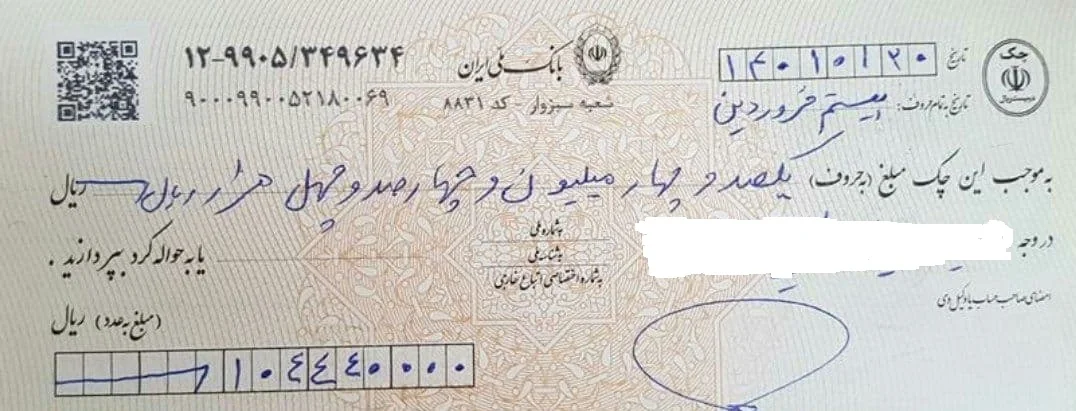 چک
در بستر ریال
تاریخ ۱۴۰۱۰۱۲۰
تاریخ به تمام حروف: بیستم فروردین
بانک ملی ایران
شعبه سبزوار - کد ۸۸۳۱
۱۲-۹۹۰۵/۳۴۹۶۳۴
۹۰۰۰۹۹۰۰۵۲۱۸۰۰۶۹
به موجب این چک مبلغ (به حروف) یکصد و چهار میلیون و چهارصد و چهل هزار ریال ریال
در وجه
به شماره ملی
به شناسه ملی
به شماره اختصاصی اتباع خارجی
یا به حواله کرد بپردازید .
امضای صاحب حساب یا وکیل وی
(مبلغ به عدد) ریال
۱۰۴۴۴۰۰۰۰